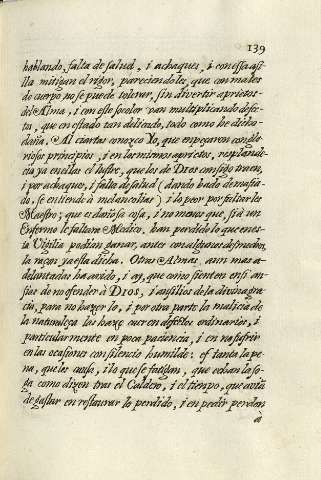 139
hablando, falta de salud, i achaques, i con essa asi-
lla mitigan el rigor, pareciendoles, que con males
de cuerpo no se puede tolerar, sin divertir aprietos
del Alma, i con este socolor van multiplicando defec-
tos, que en estado tan delicado, todo como he dicho
daña. Al ciertas conozco Yo, que empeçaron con glo-
riosos principios, i en los mismos aprietos, resplande-
cia ya en ellas el lustre, que los de Dios consigo traen,
i por achaques, i falta de salud (dando bado demasia-
do, se entiende à melancolias) i lo peor por faltarles
Maestro; que es dañosa cosa, i no menos que, si à un
Enfermo le faltara Medico, han perdido lo que en es-
ta Vigilia podian ganar, antes con algunas desmedran,
la raçon ya esta dicha. Otras Almas, aun mas a-
delantadas ha avido, i ay, que como sienten en si an-
sias de no ofender à Dios, i ausilios de la divina gra-
cia, para no hazerlo, i por otra parte la malicia de
la naturaleza las haze caer en defectos ordinarios, i
particularmente en poca paciencia, i en no sufrir
en las ocasiones con silencio humilde: es tanta la pe-
na, que les causa, i lo que se fatigan, que echan la so-
ga como dizen tras el Caldero, i el tiempo, que avian
de gastar en restaurar lo perdido, i en pedir perdon
à